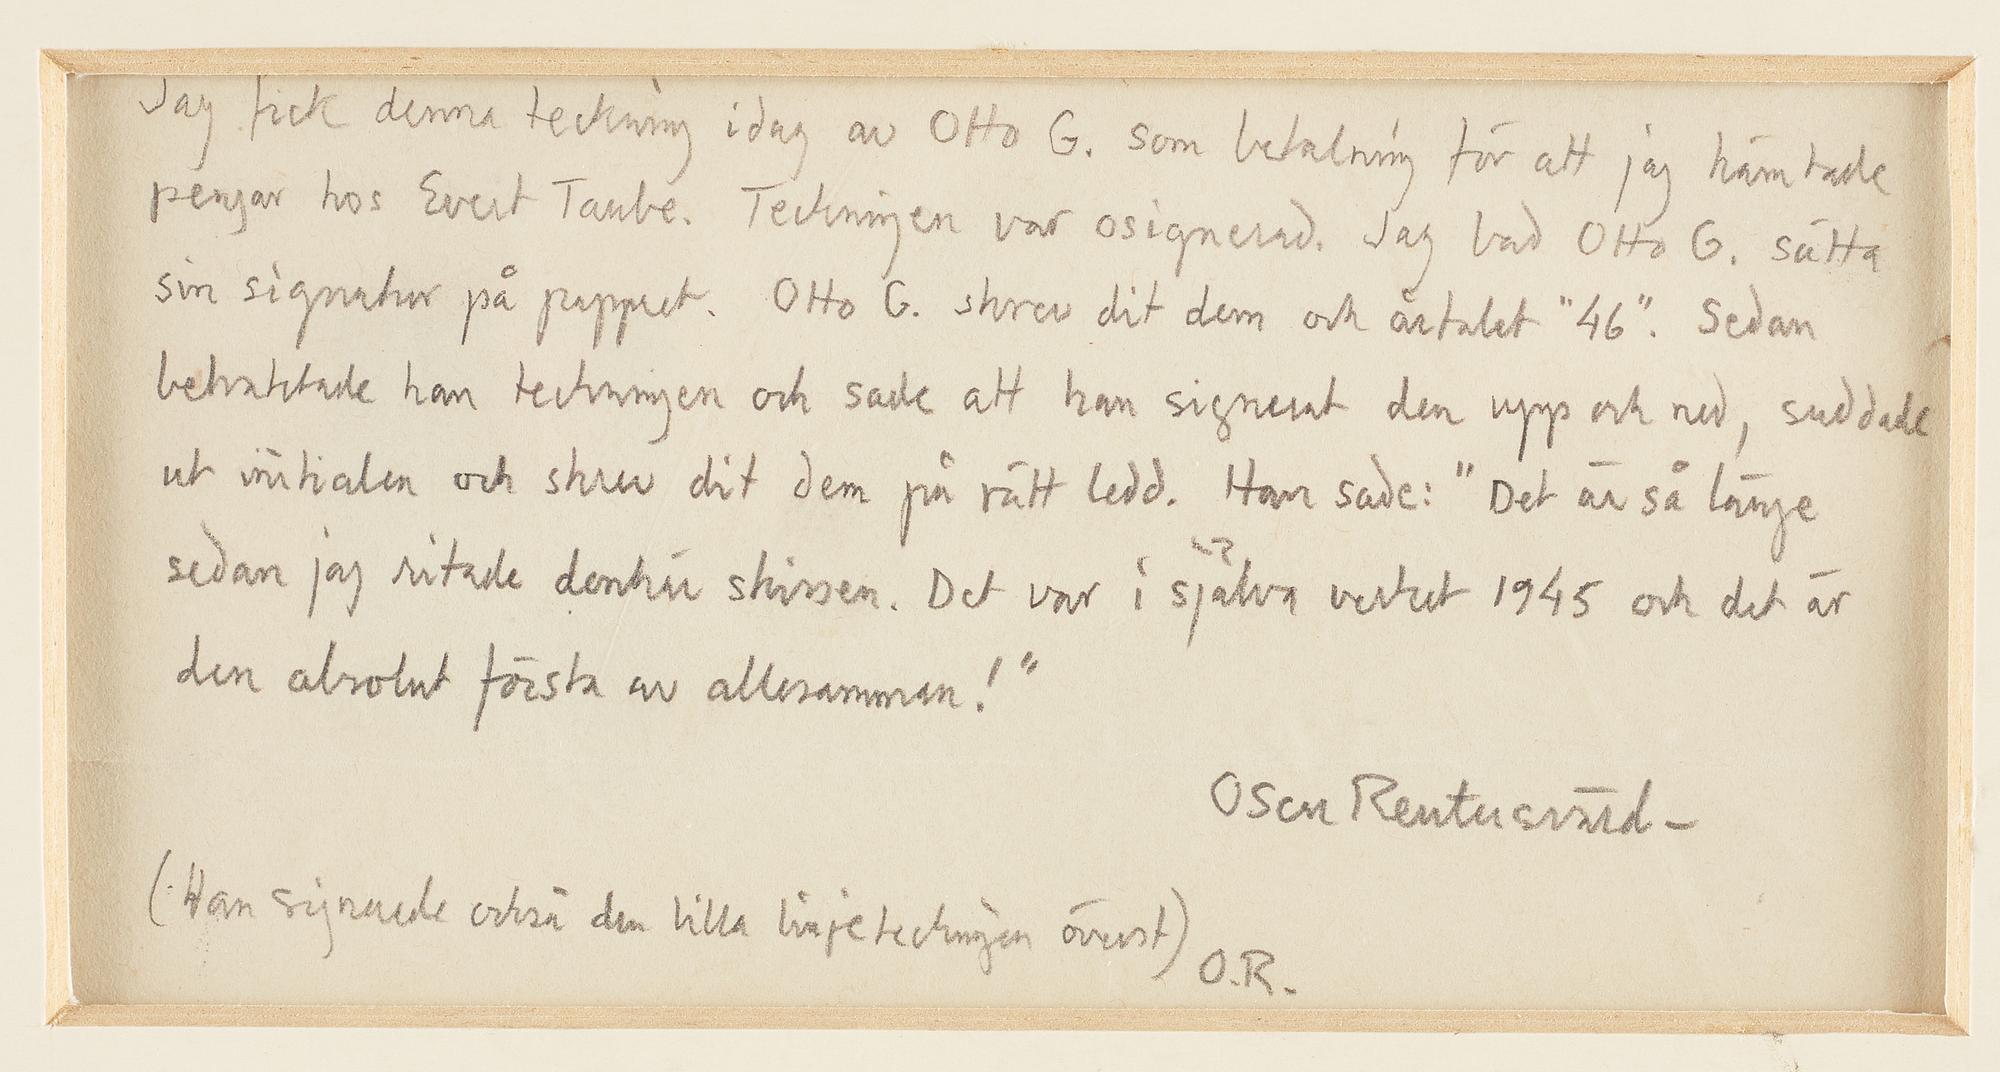 Jag fick denna teckning idag av Otto G. som betalning för att jag hämtade
pengar hos Evert Taube. Teckningen var osignerad. Jag bad Otto G. sätta
sin signatur på pappret. Otto G. skrev dit dem och årtalet "46". Sedan
betraktade han teckningen och sade att han signerat den upp och ned, suddade
ut initialen och skrev dit dem på rätt ledd. Han sade: "Det är så länge
sedan jag ritade denhär skissen. Det var i själva verket 1945 och det är
den absolut första av allesamman!"
Oscar Reutersvärd –
(Han signerade också den lilla linjeteckningen överst)
O.R.